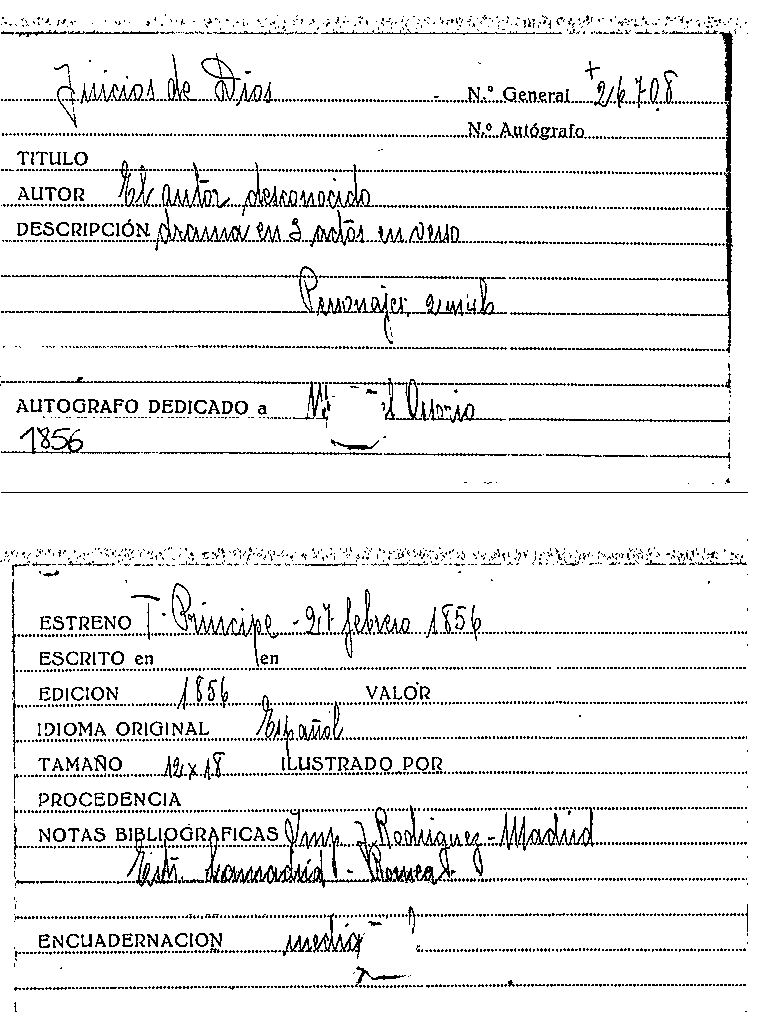 Juicios de Dios N.º General +26708
N.º Autógrafo
TITULO
AUTOR El autor desconocido
DESCRIPCIÓN drama en 3 actos en verso
Personajes
AUTOGRAFO DEDICADO a Osorio
1856
ESTRENO T. Príncipe - 27 febrero 1856
ESCRITO en en
EDICION 1856 VALOR
IDIOMA ORIGINAL Español
TAMAÑO 12 x 18 ILUSTRADO POR
PROCEDENCIA
NOTAS BIBLIOGRAFICAS Imp. J. Rodriguez - Madrid
Lamadrid - Romea
ENCUADERNACION media